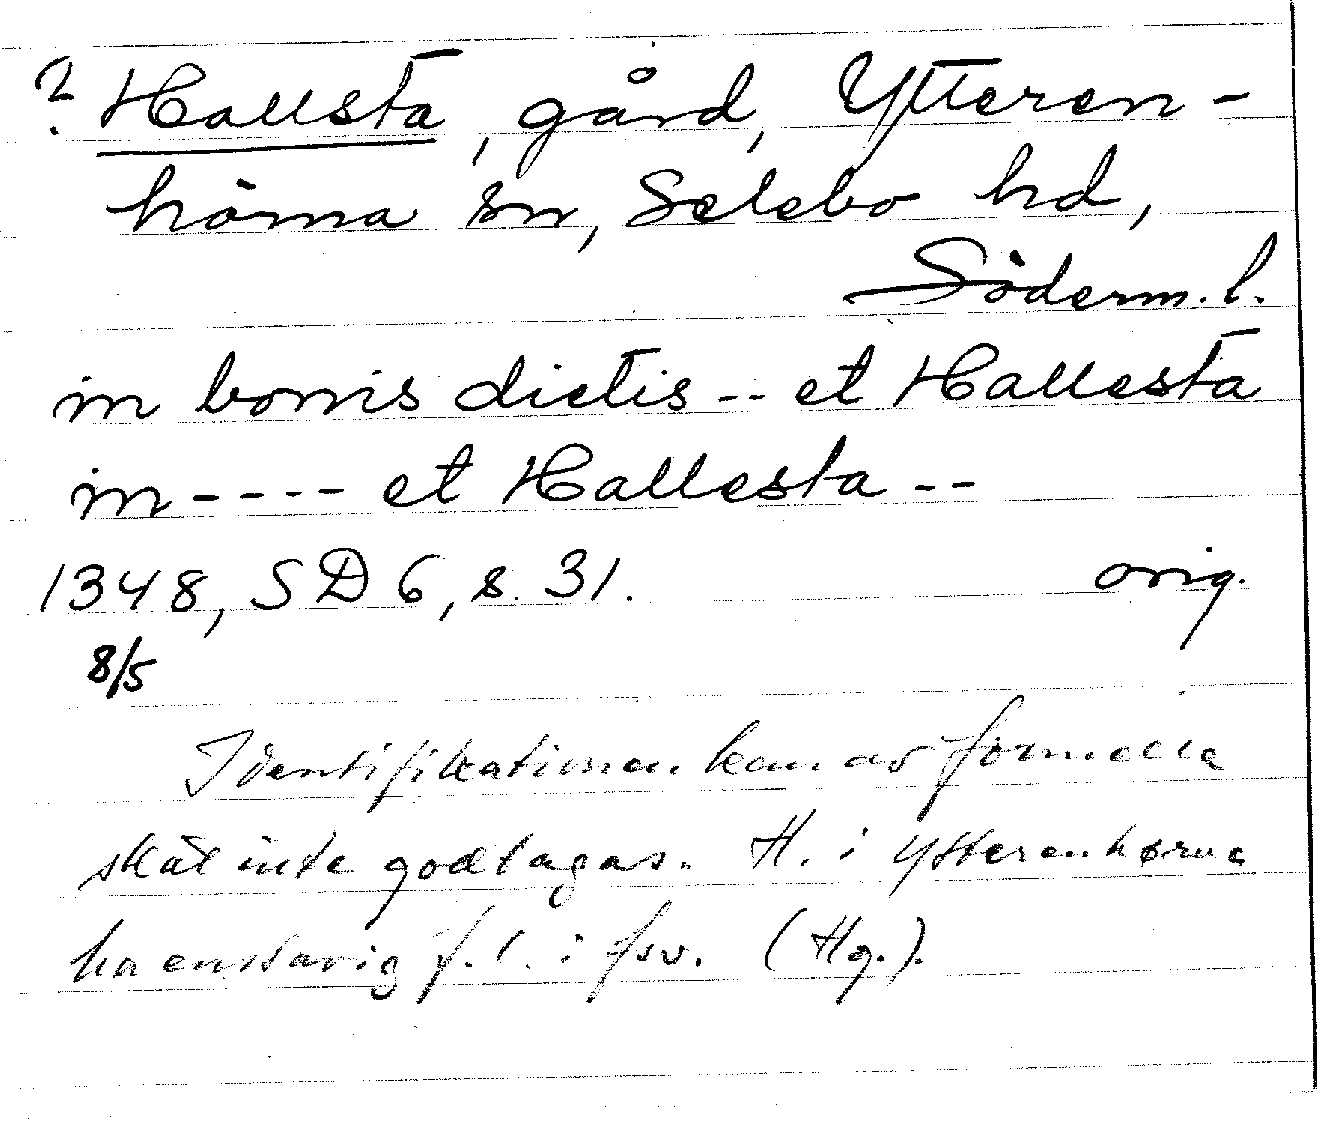 ? Hallsta, gård, Ytteren-
hörna sn, Selebo hd,
Söderm. l.
in bonis dictis -- et Hallesta
in ---- et Hallesta --
1348, SD 6, s. 31. orig.
8/5
Identifikationen kan av formella
skäl inte godtagas. H. i Ytterenhörna
ha enstavig f. l. i fsv. (Hg.).